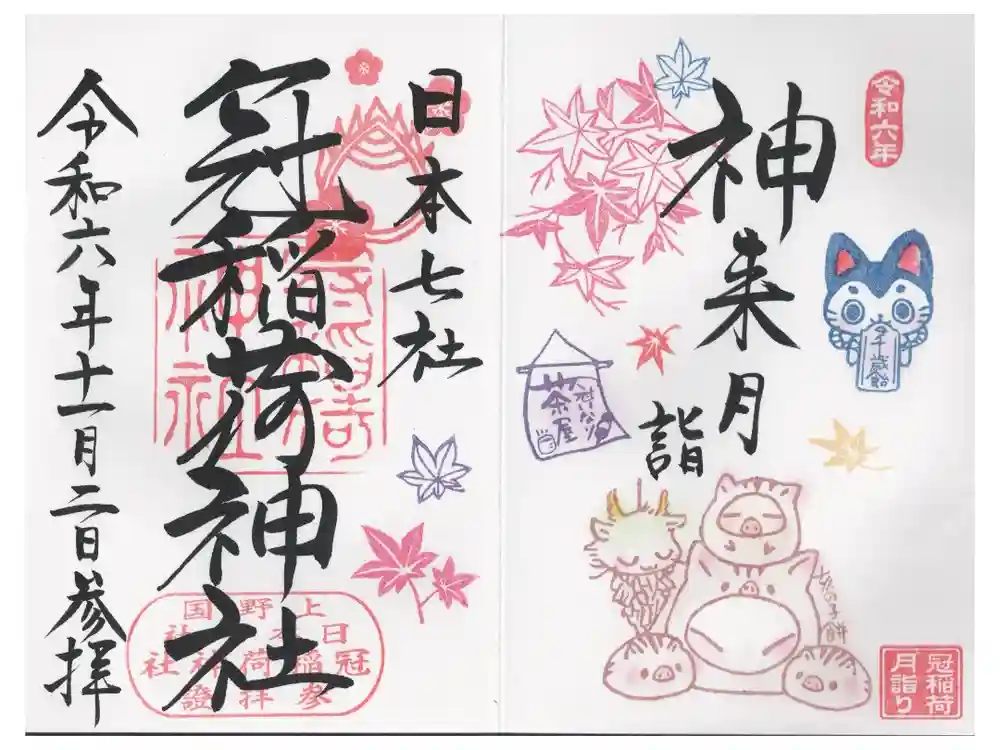 令和六年
神来月
詣
冠いなり
茶屋
千歳飴
亥の子餅
冠稲荷
月詣り
日本七社
冠稲荷神社
冠稲荷
神社
上野国
日本七社
冠稲荷神社
参拝證
令和六年十一月二日参拝